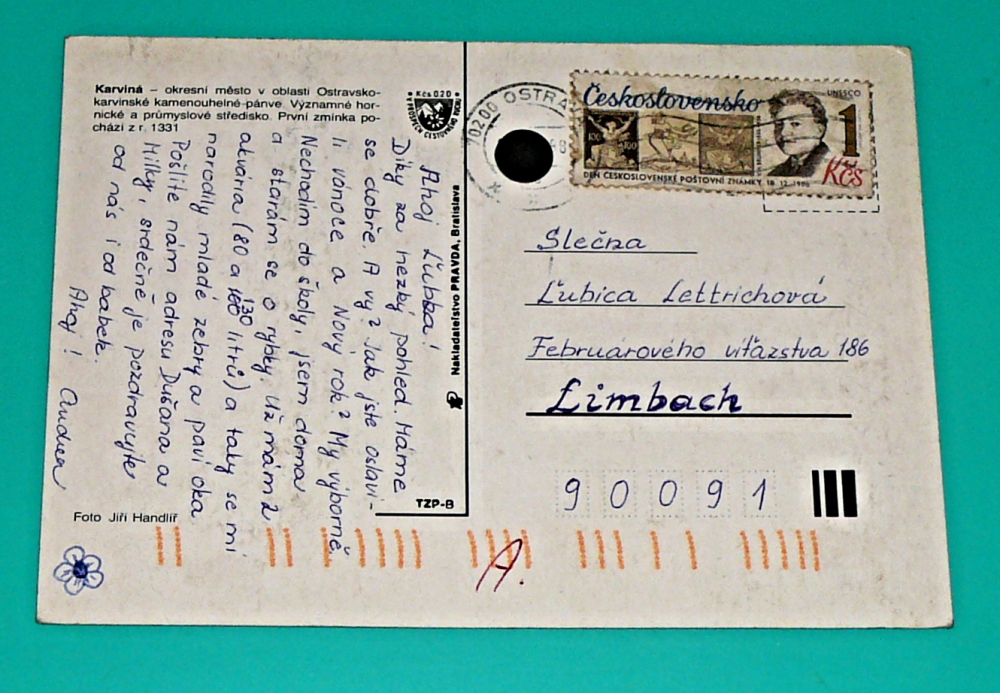 Karviná – okresní město v oblasti Ostravsko-
karvinské kamenouhelné-pánve. Významné hor-
nické a průmyslové středisko. První zmínka po-
chází z r. 1331
Kčs 0,20
Ahoj Ľubka!
Díky za hezký pohled. Máme
se dobře. A vy? Jak jste oslavi-
li vánoce a Nový rok? My výborně.
Nechodím do školy, jsem doma
a starám se o rybky. Už mám 2
akvária (80 a 130 litrů) a taky se mi
narodily mladé zebry a paví oka
Pošlite nám adresu Dušana a
Milky, srdečně je pozdravujte
od nás i od babek.
Ahoj! Andrea
Foto Jiří Handlíř
Nakladatelstvo PRAVDA, Bratislava
TZP-B
702 00 OSTRA
Československo
UNESCO
100
100
1
Kčs
DEN ČESKOSLOVENSKÉ POŠTOVNÍ ZNÁMKY 18. 12. 1986
Slečna
Ľubica Lettrichová
Februárového víťazstva 186
Limbach
90091
A.